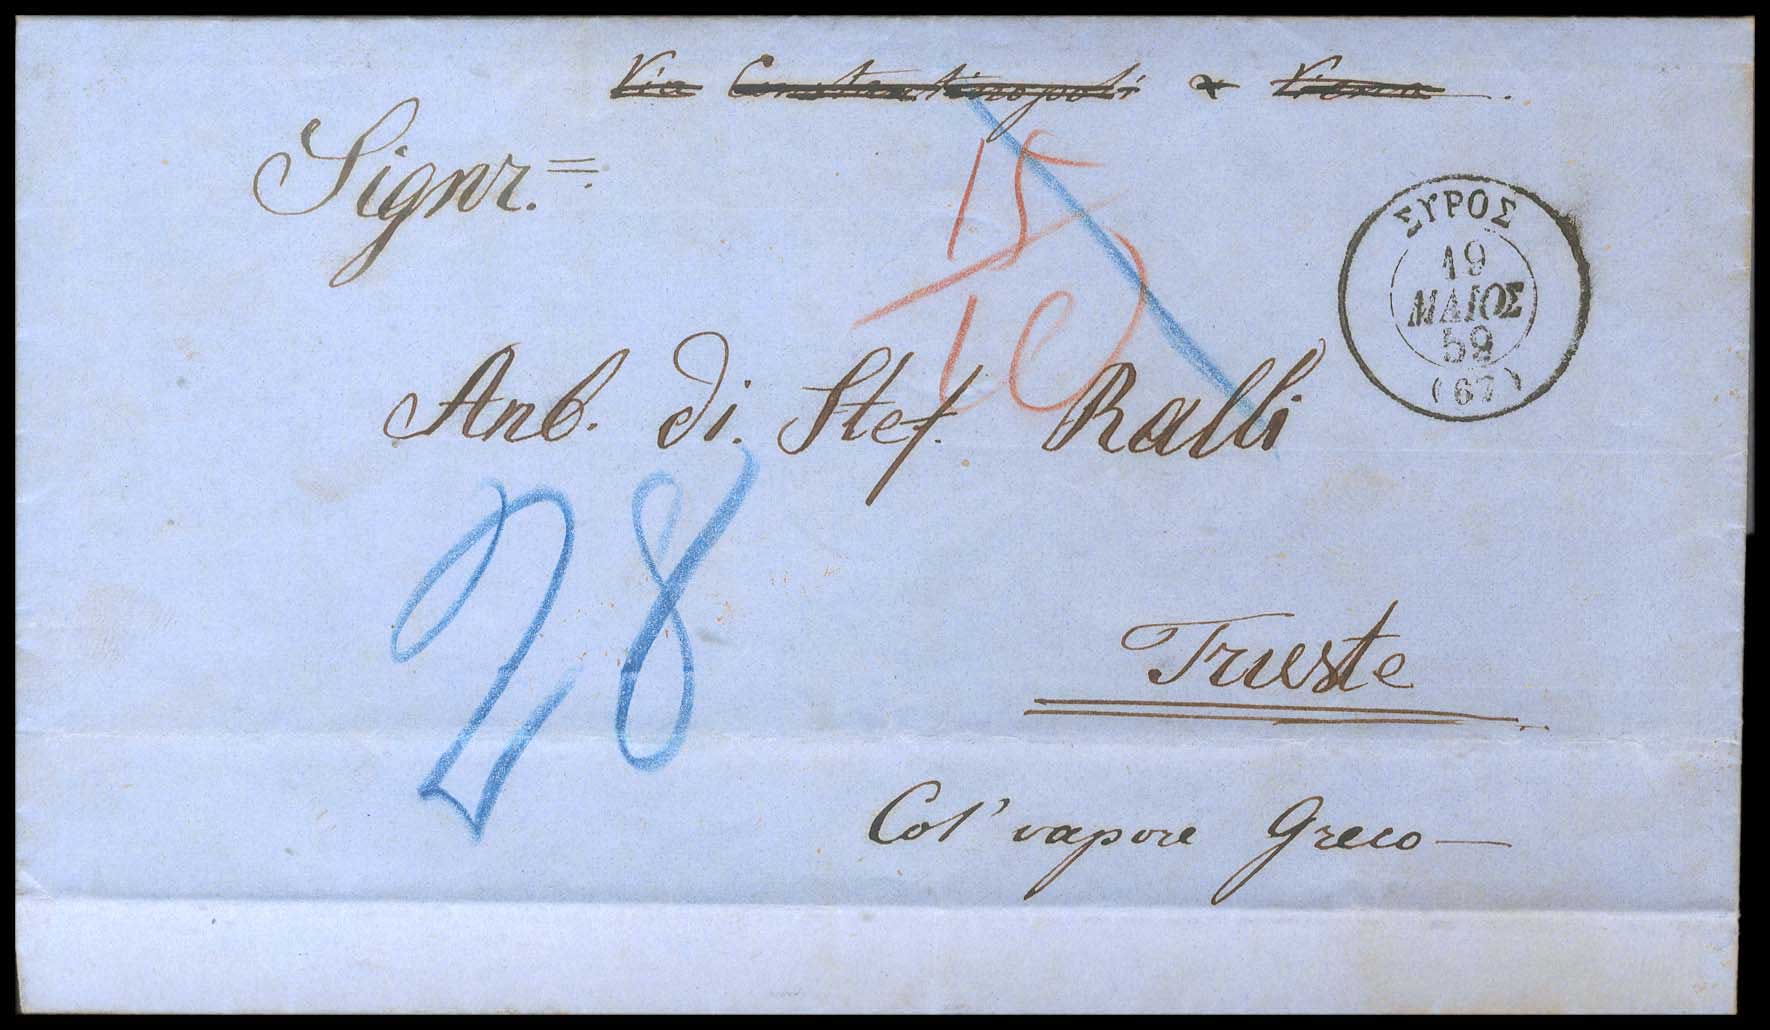 Via Constantinopoli & Vienna
Signr.
15
10
ΣΥΡΟΣ
19
ΜΑΙΟΣ
59
(67)
Amb. di. Stef. Ralli
28
Trieste
Col' vapore Greco